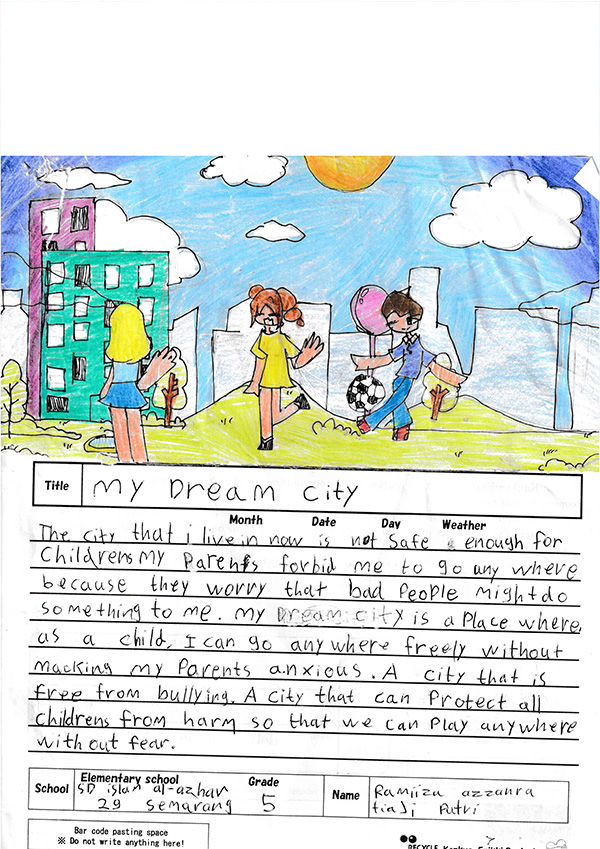 Title My Dream city
Month Date Day Weather
The city that i live in now is not safe enough for
Childrens My Parents forbid me to go any where
because they worry that bad People might do
something to me. My Dream city is a Place where,
as a child, I can go anywhere freely without
macking my Parents anxious. A city that is
free from bullying. A city that can Protect all
childrens from harm so that we can Play anywhere
without fear.
School Elementary school Grade Name
SD islam al-azhar
29 semarang 5
Ramiiza azzahra
tiadi Putri
Bar code pasting space
※ Do not write anything here!
RECYCLE